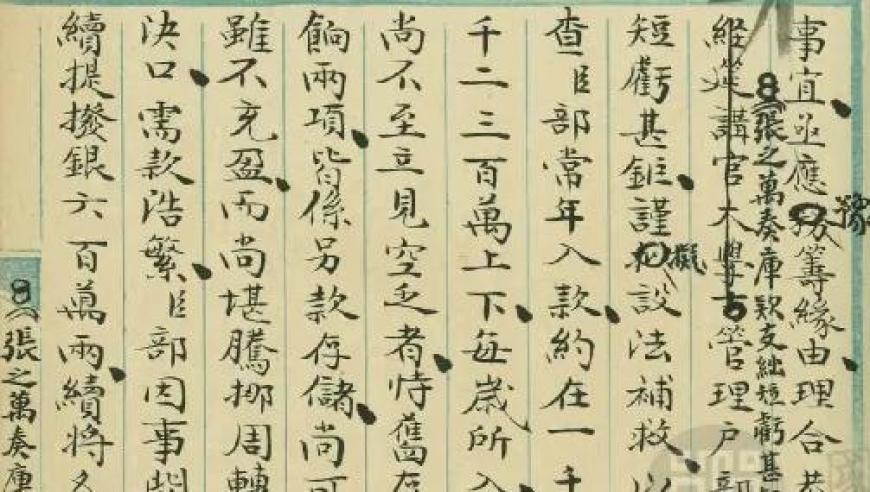 事宜、亟應豫籌緣由、理合恭
8(張之萬奏庫款支絀短虧甚
經筵講官大學士管理戶部
短虧甚鉅、謹擬設法補救、以
查臣部常年入款、約在一千
千二三百萬上下、每歲所入
尚不至立見空乏者、恃舊存
餉兩項、皆係另款存儲、尚可
雖不充盈、而尚堪騰挪周轉
決口、需款浩繁、臣部因事
續提撥銀六百萬兩、續將
8(張之萬奏庫